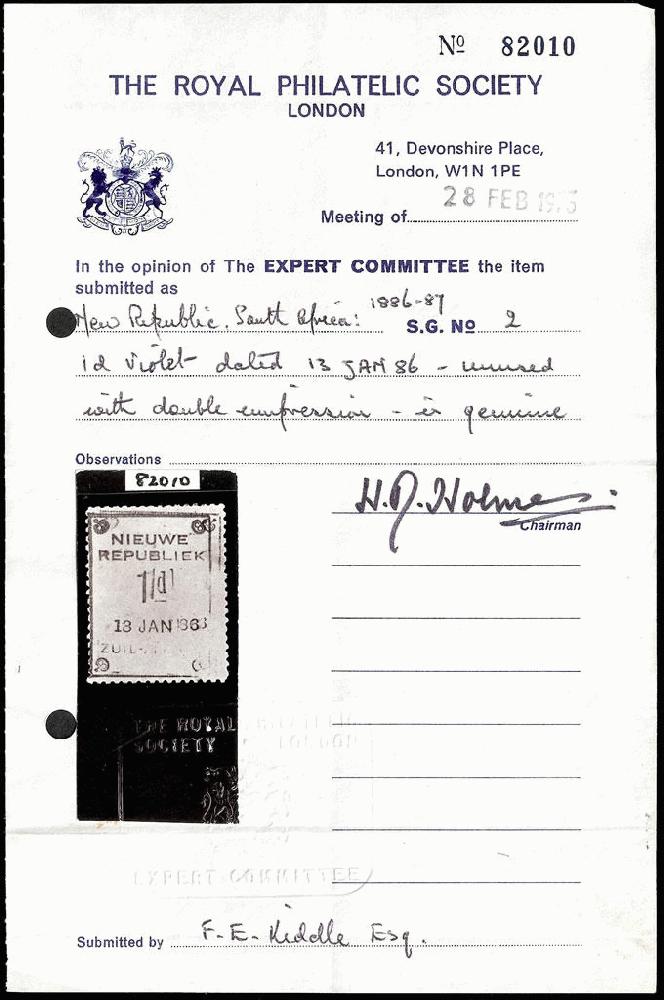 Nº 82010
THE ROYAL PHILATELIC SOCIETY
LONDON
41, Devonshire Place,
London, W1N 1PE
28 FEB
Meeting of
In the opinion of The EXPERT COMMITTEE the item
submitted as
New Republic. South Africa: 1886-87 S.G. Nº 2
1d Violet dated 13 JAN 86 - unused
with double impression - is genuine
Observations
82010
H.D. Holmes
Chairman
NIEUWE
REPUBLIEK
1/d
13 JAN 86
ZUID-
THE ROYAL PHILATELIC
SOCIETY LONDON
EXPERT COMMITTEE
Submitted by F. E. Kiddle Esq.